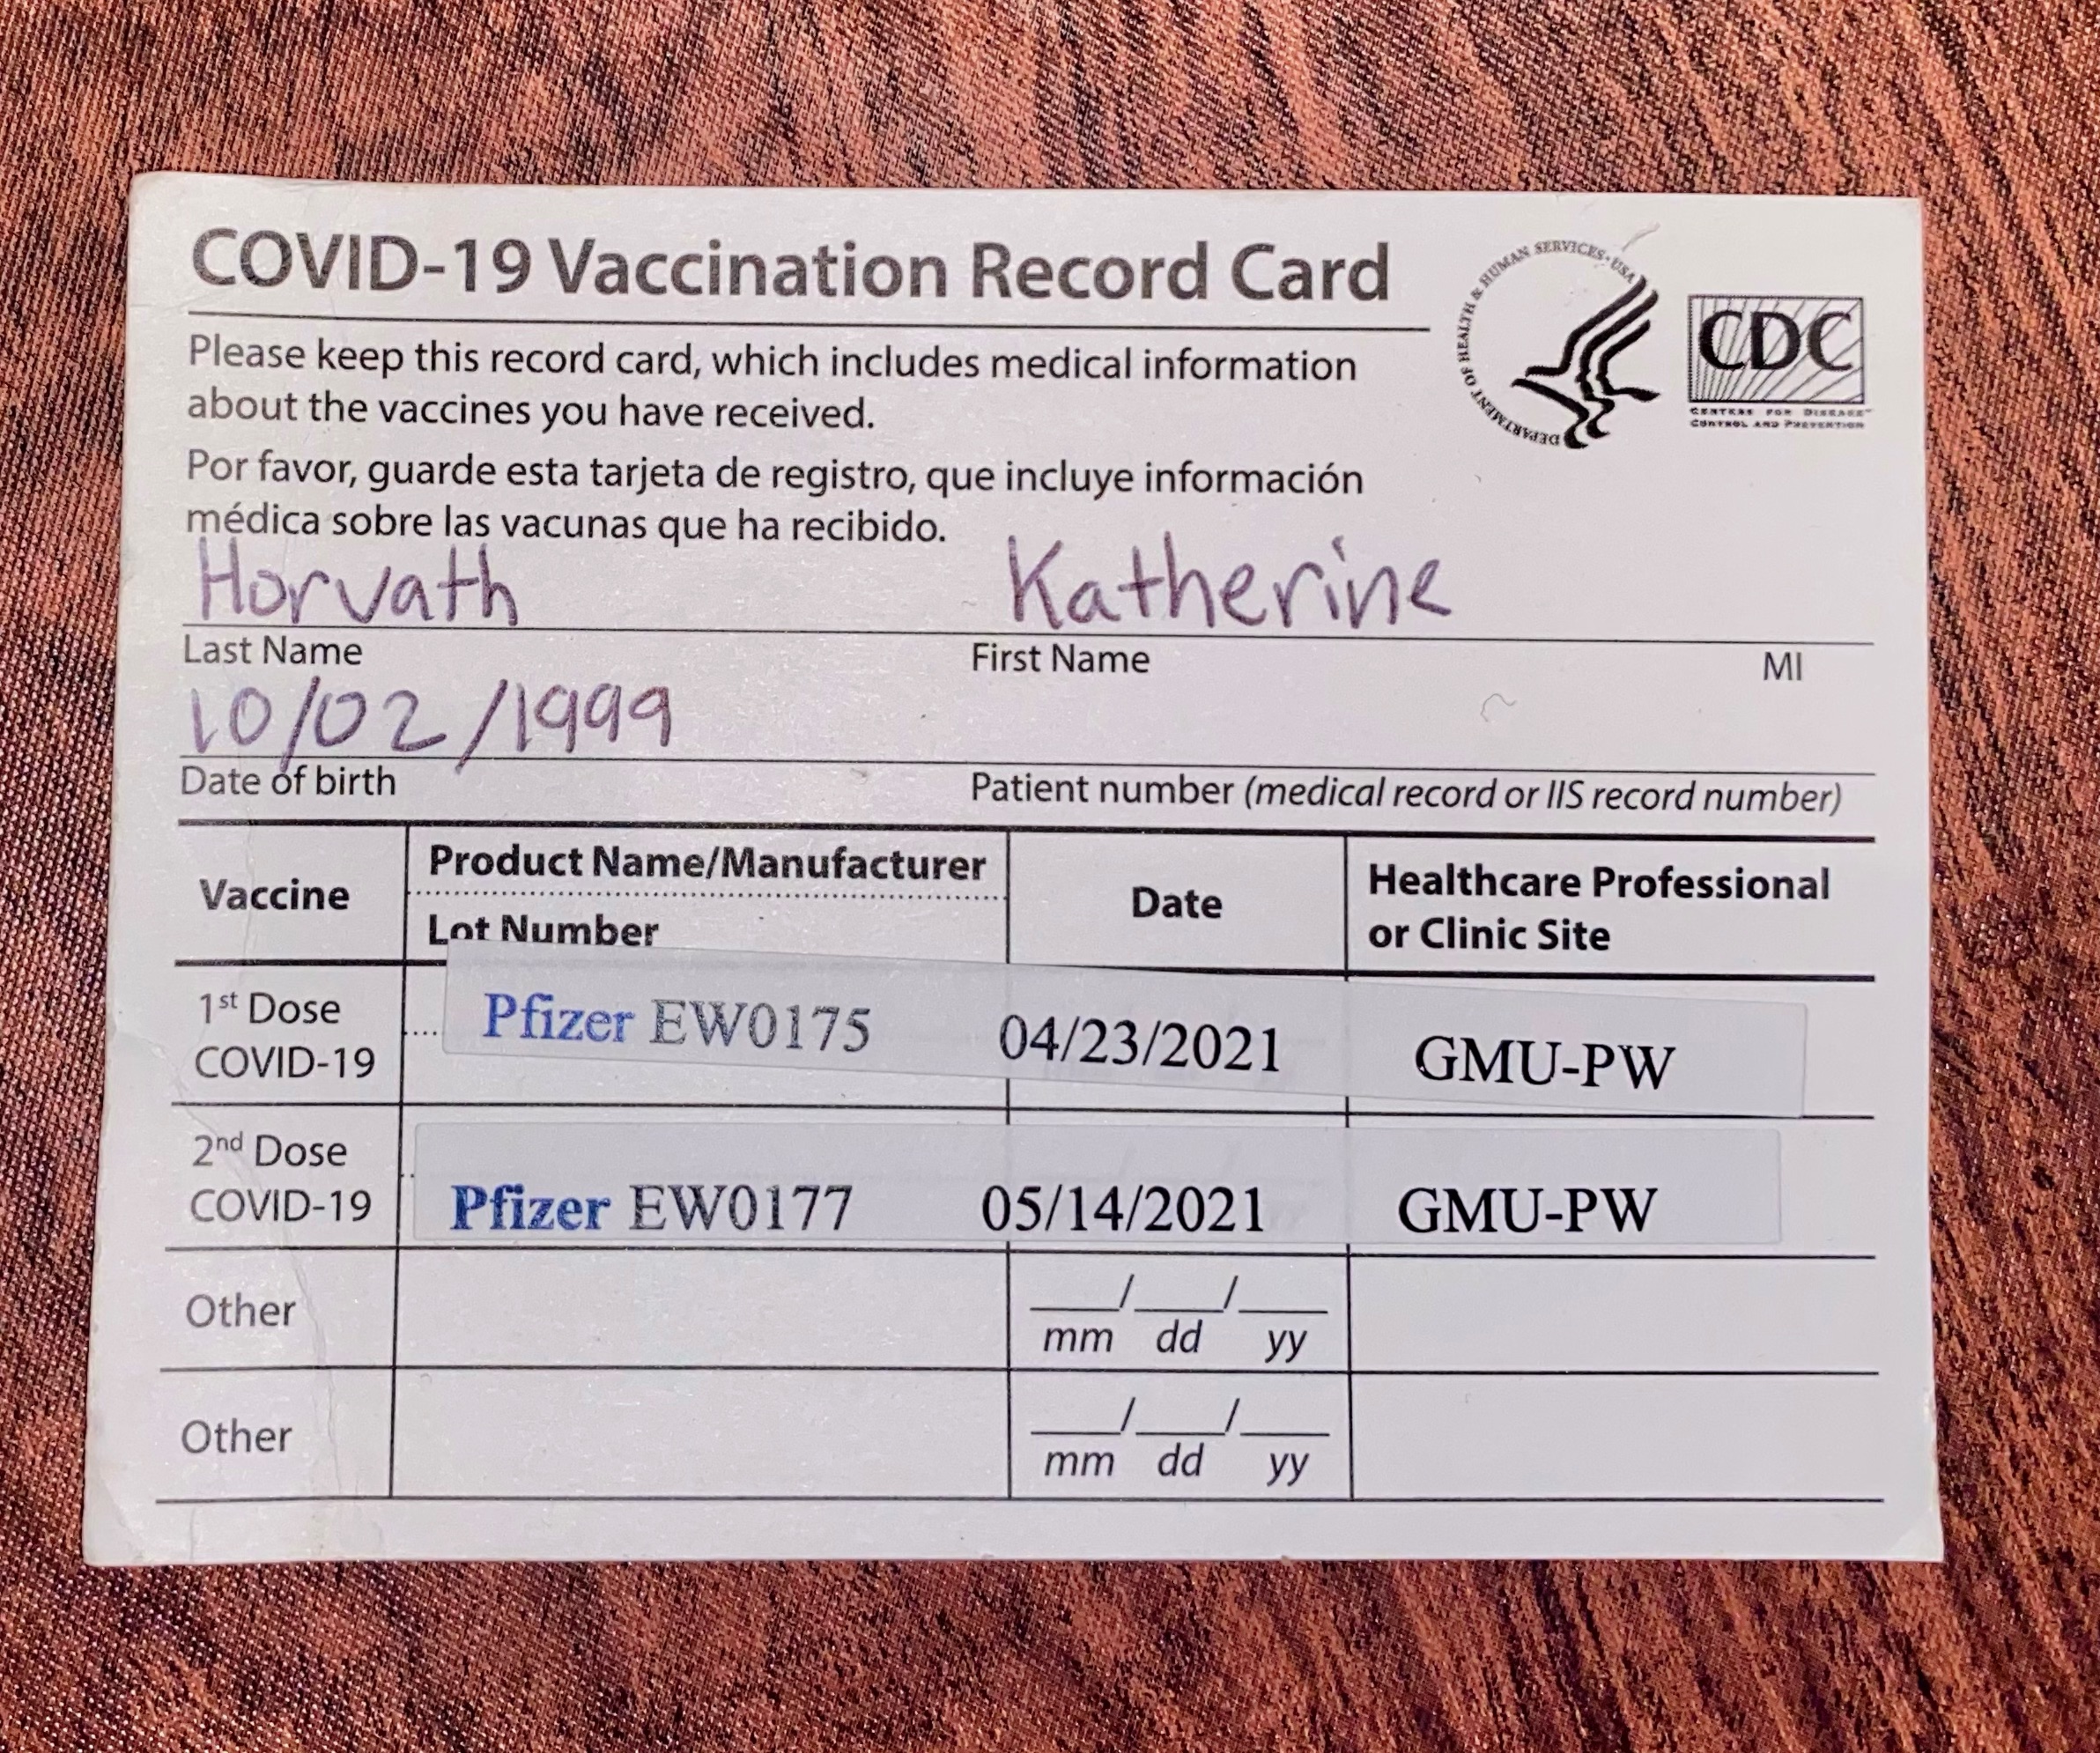 COVID-19 Vaccination Record Card
DEPARTMENT OF HEALTH & HUMAN SERVICES • USA
CDC
CENTERS FOR DISEASE™
CONTROL AND PREVENTION
Please keep this record card, which includes medical information
about the vaccines you have received.
Por favor, guarde esta tarjeta de registro, que incluye información
médica sobre las vacunas que ha recibido.
Horvath Katherine
Last Name First Name MI
10/02/1999
Date of birth Patient number (medical record or IIS record number)
Vaccine
Product Name/Manufacturer
Lot Number
Date
Healthcare Professional
or Clinic Site
1st Dose
COVID-19
Pfizer EW0175 04/23/2021 GMU-PW
2nd Dose
COVID-19
Pfizer EW0177 05/14/2021 GMU-PW
Other
___/___/___
mm dd yy
Other
___/___/___
mm dd yy